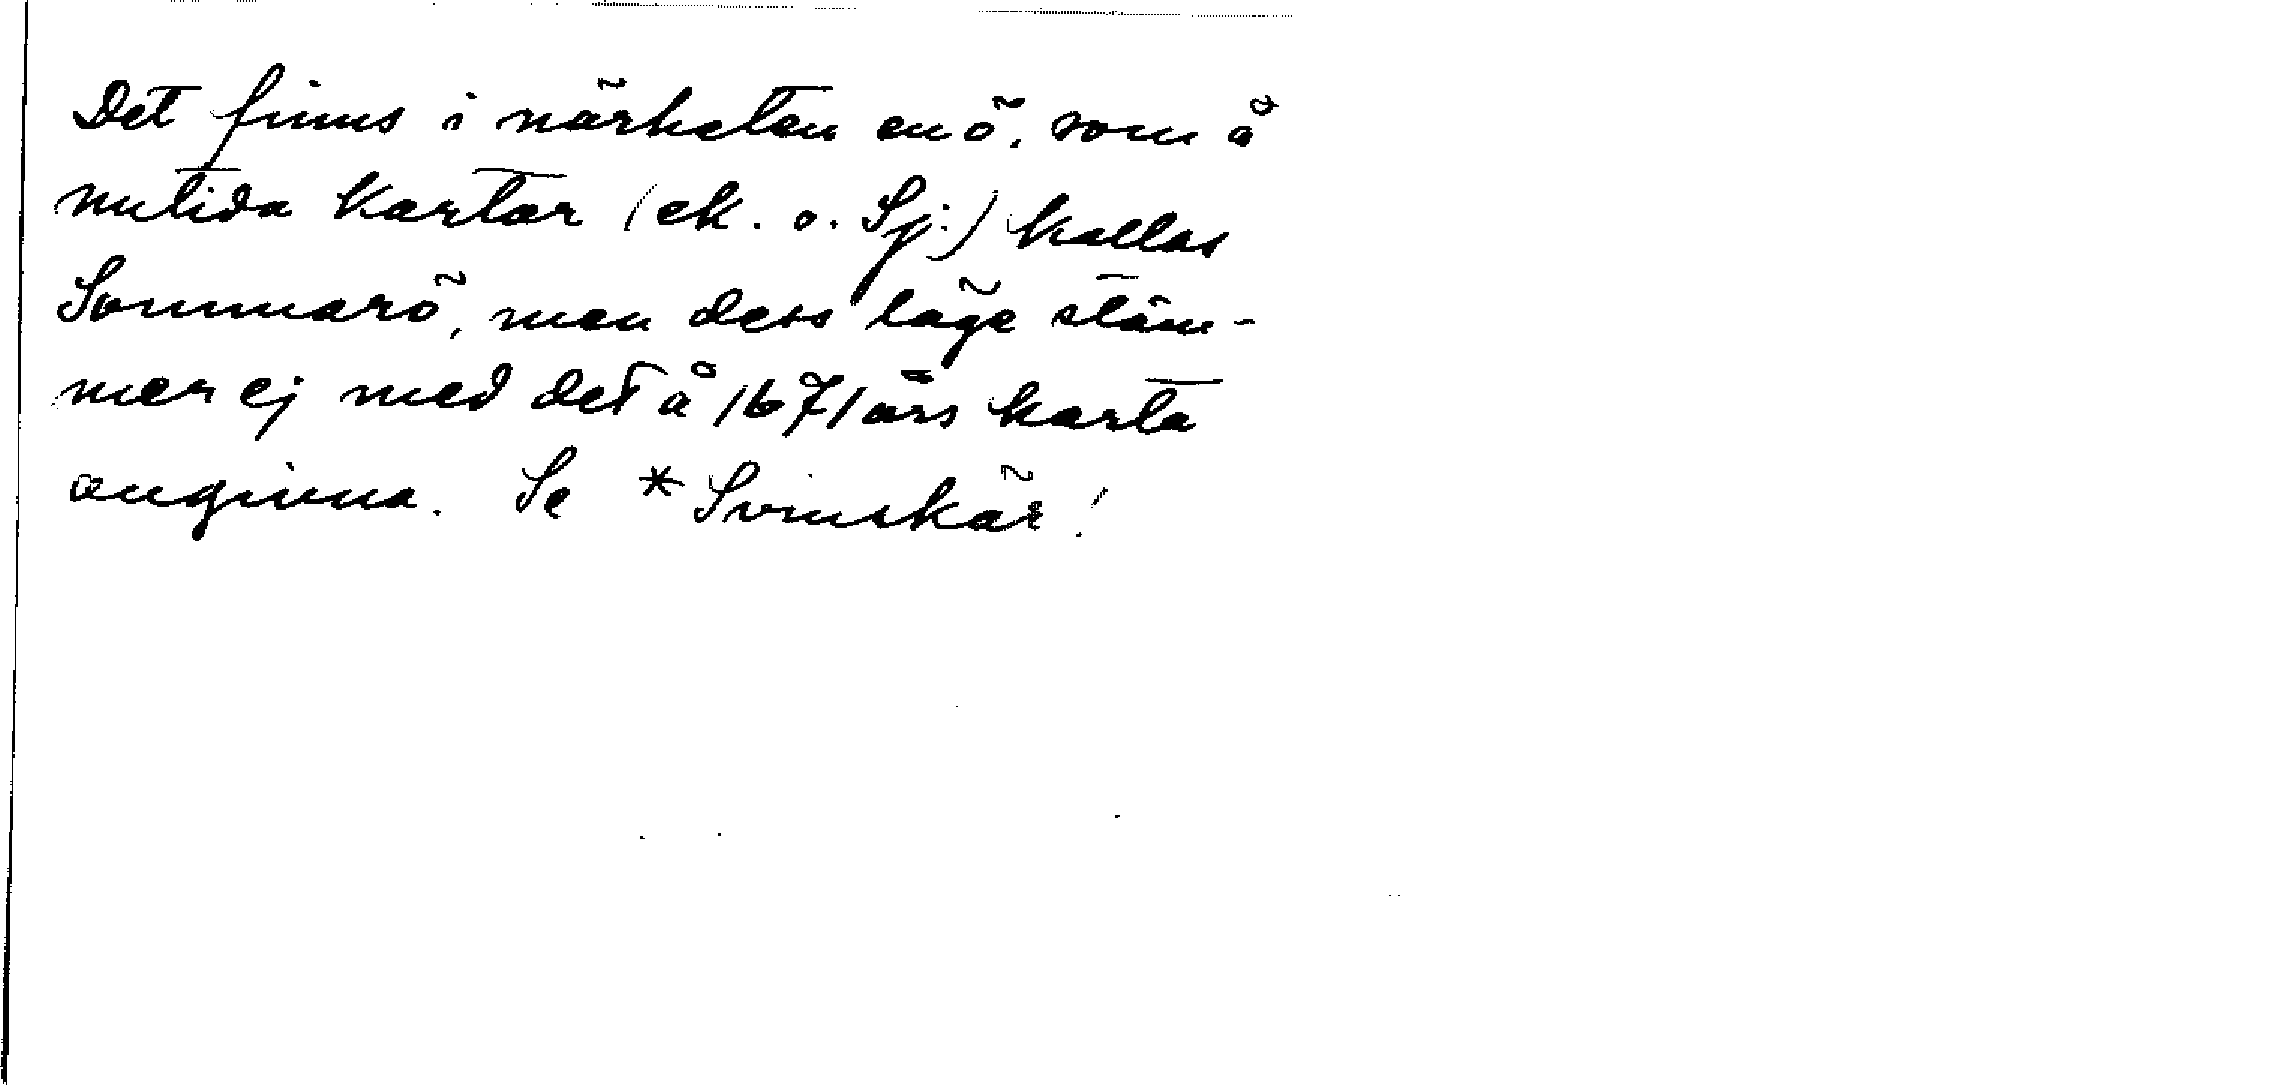 Det finns i närheten en ö, som å
nutida kartor (ek. o. Sj.) kallas
Sommarö, men dess läge stäm-
mer ej med det å 1671 års karta
angivna. Se *Svinskär!